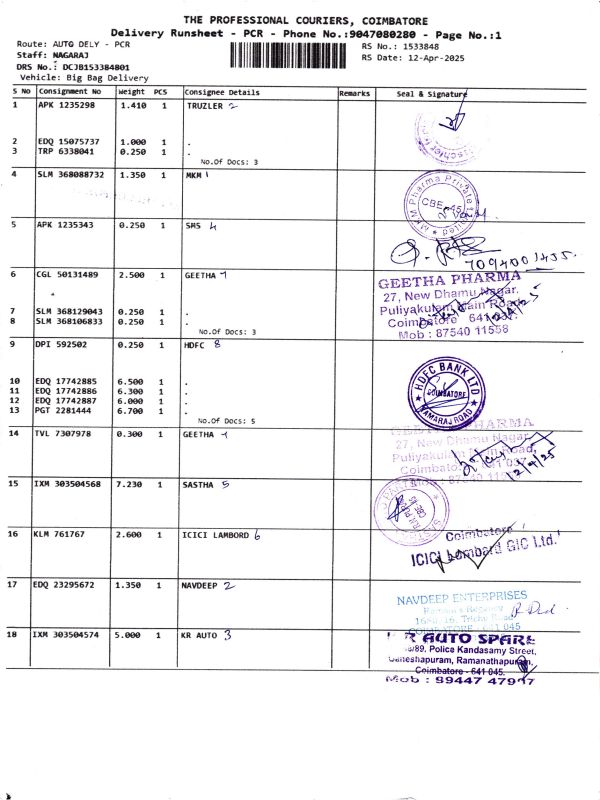 THE PROFESSIONAL COURIERS, COIMBATORE
Delivery Runsheet - PCR - Phone No.:9047080280 - Page No.:1
Route: AUTO DELY - PCR
RS No.: 1533848
Staff: NAGARAJ
RS Date: 12-Apr-2025
DRS No.: DCJB153384801
Vehicle: Big Bag Delivery
S No Consignment No Weight PCS Consignee Details Remarks Seal & Signature
1 APK 1235298 1.410 1 TRUZLER 2
2 EDQ 15075737 1.000 1 .
3 TRP 6338041 0.250 1 .
No.Of Docs: 3
4 SLM 368088732 1.350 1 MKM 1
MKM Pharma Private Limited
CBE-45
5 APK 1235343 0.250 1 SMS 4
7094001435
6 CGL 50131489 2.500 1 GEETHA 7
GEETHA PHARMA
27, New Dhamu Nagar,
Puliyakulam Main Road,
Coimbatore 641 037.
Mob : 87540 11558
7 SLM 368129043 0.250 1 .
8 SLM 368106833 0.250 1 .
No.Of Docs: 3
9 DPI 592502 0.250 1 HDFC 8
HDFC BANK LTD
COIMBATORE
KAMARAJ ROAD
10 EDQ 17742885 6.500 1 .
11 EDQ 17742886 6.300 1 .
12 EDQ 17742887 6.000 1 .
13 PGT 2281444 6.700 1 .
No.Of Docs: 5
14 TVL 7307978 0.300 1 GEETHA
GEETHA PHARMA
27, New Dhamu Nagar
Puliyakulam Main Road,
Coimbatore 641 037
12/4/25
15 IXM 303504568 7.230 1 SASTHA 5
16 KLM 761767 2.600 1 ICICI LAMBORD 6
Coimbatore
ICICI Lombard GIC Ltd.
17 EDQ 23295672 1.350 1 NAVDEEP 2
NAVDEEP ENTERPRISES
COIMBATORE - 641 045
18 IXM 303504574 5.000 1 KR AUTO 3
AUTO SPARE
/89, Police Kandasamy Street,
Ganeshapuram, Ramanathapuram,
Coimbatore - 641 045.
Mob : 99447 47917